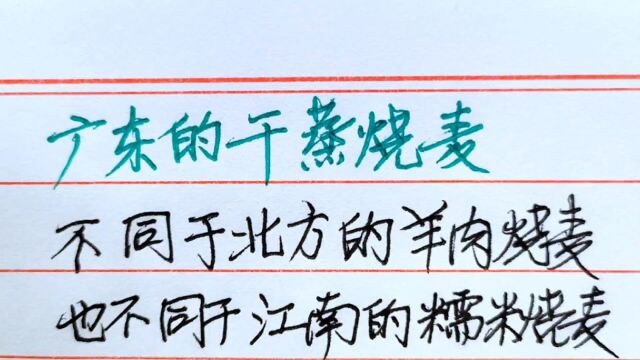 广东的干蒸烧麦
不同于北方的羊肉烧麦
也不同于江南的糯米烧麦